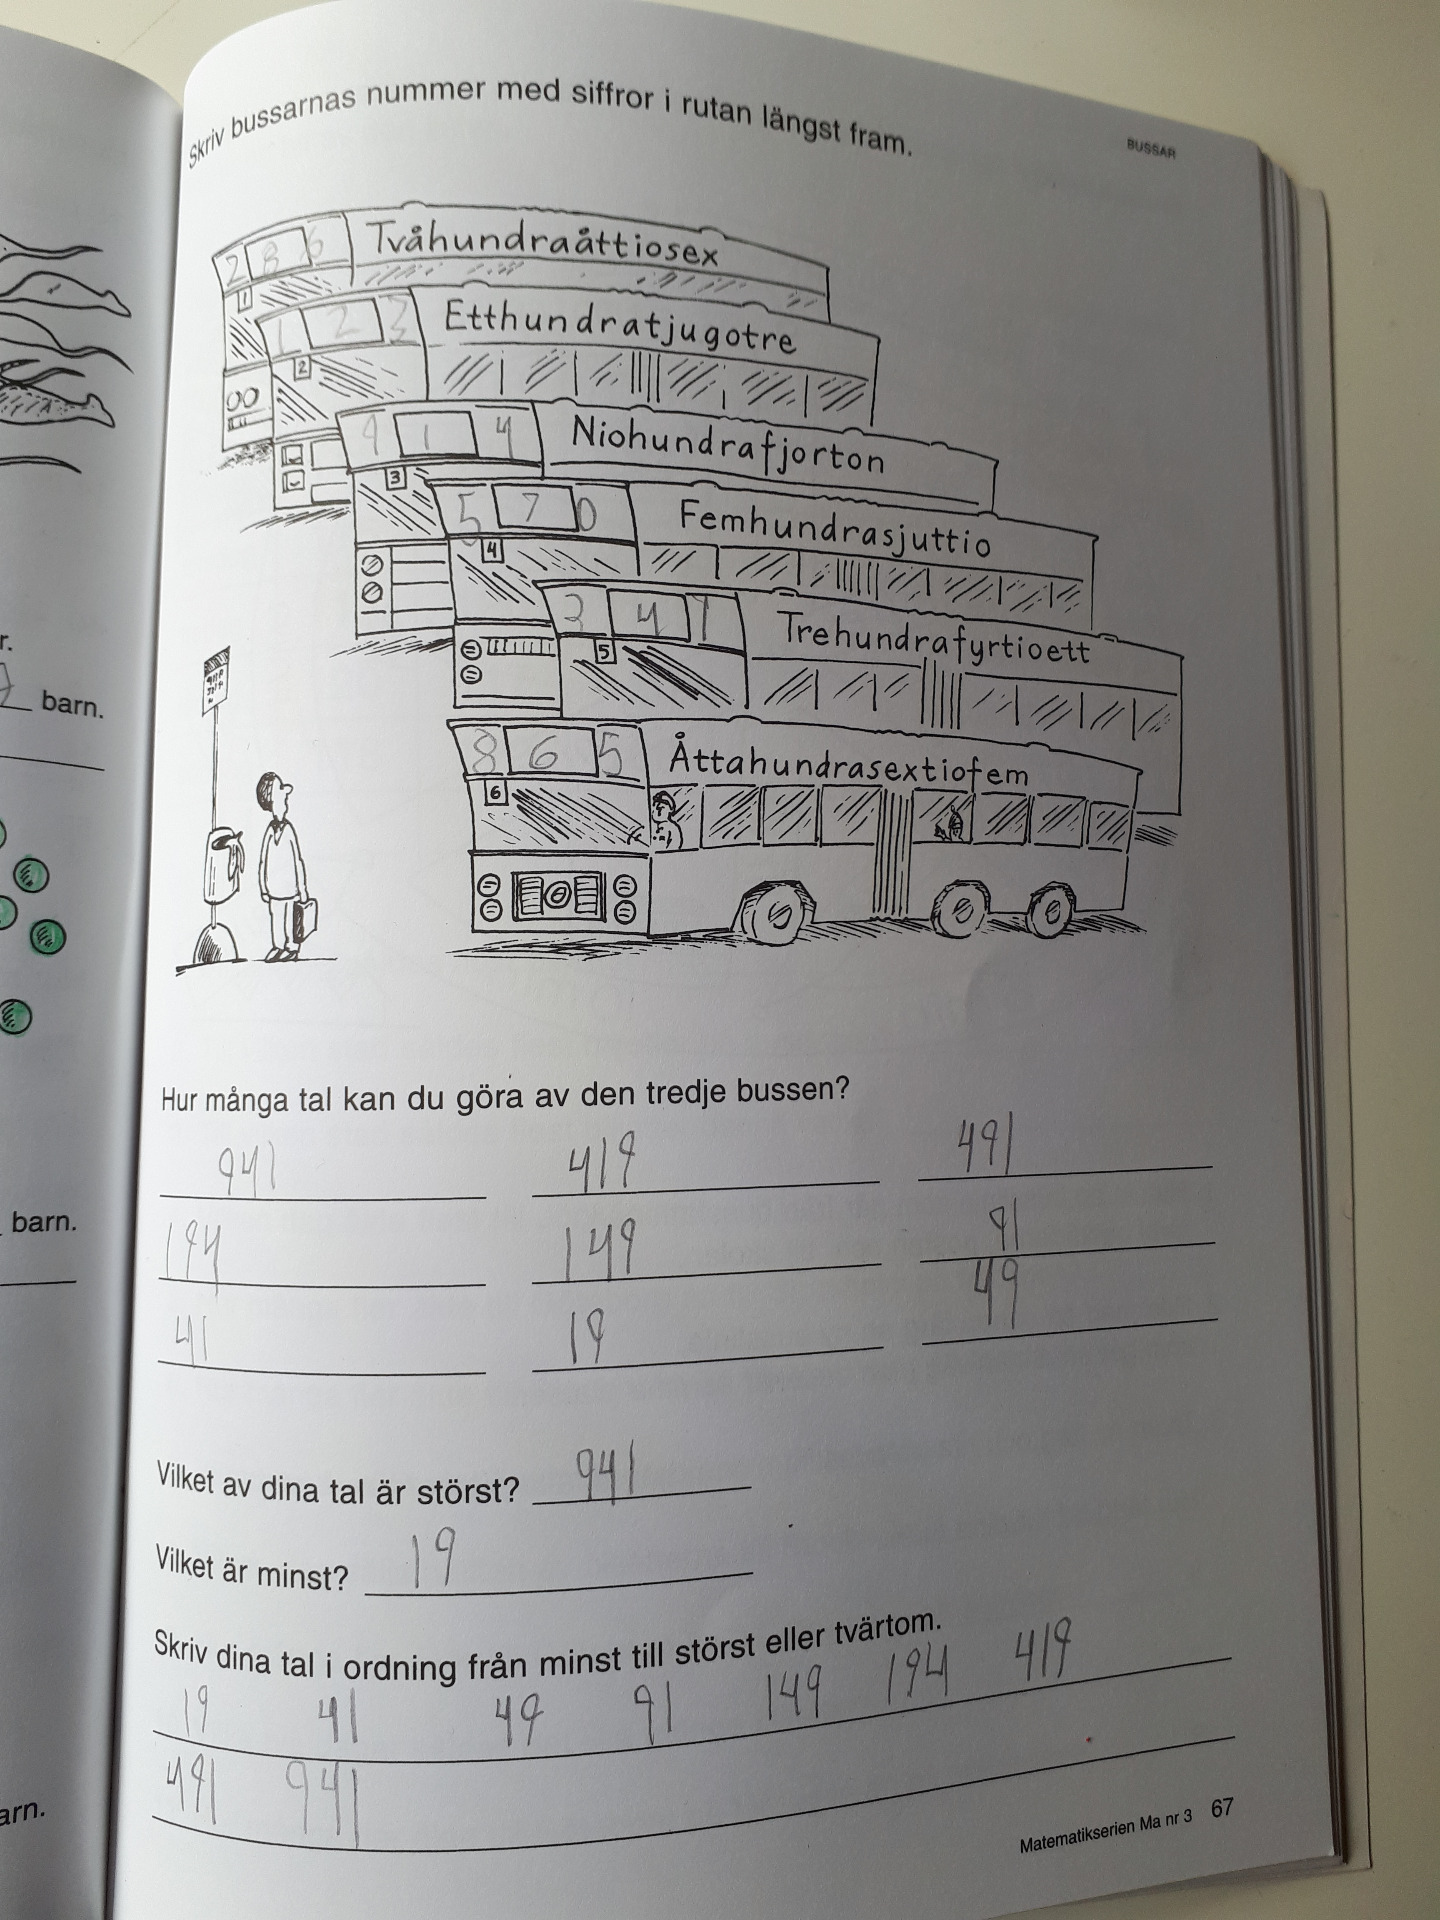 Skriv bussarnas nummer med siffror i rutan längst fram.
BUSSAR
2 8 6 Tvåhundraåttiosex
1
1 2 3 Etthundratjugotre
2
9 1 4 Niohundrafjorton
3
5 7 0 Femhundrasjuttio
4
3 4 1 Trehundrafyrtioett
5
8 6 5 Åttahundrasextiofem
6
r.
barn.
barn.
arn.
Hur många tal kan du göra av den tredje bussen?
941 419 491
194 149 91
41 19 49
Vilket av dina tal är störst? 941
Vilket är minst? 19
Skriv dina tal i ordning från minst till störst eller tvärtom.
19 41 49 91 149 194 419
491 941
Matematikserien Ma nr 3 67